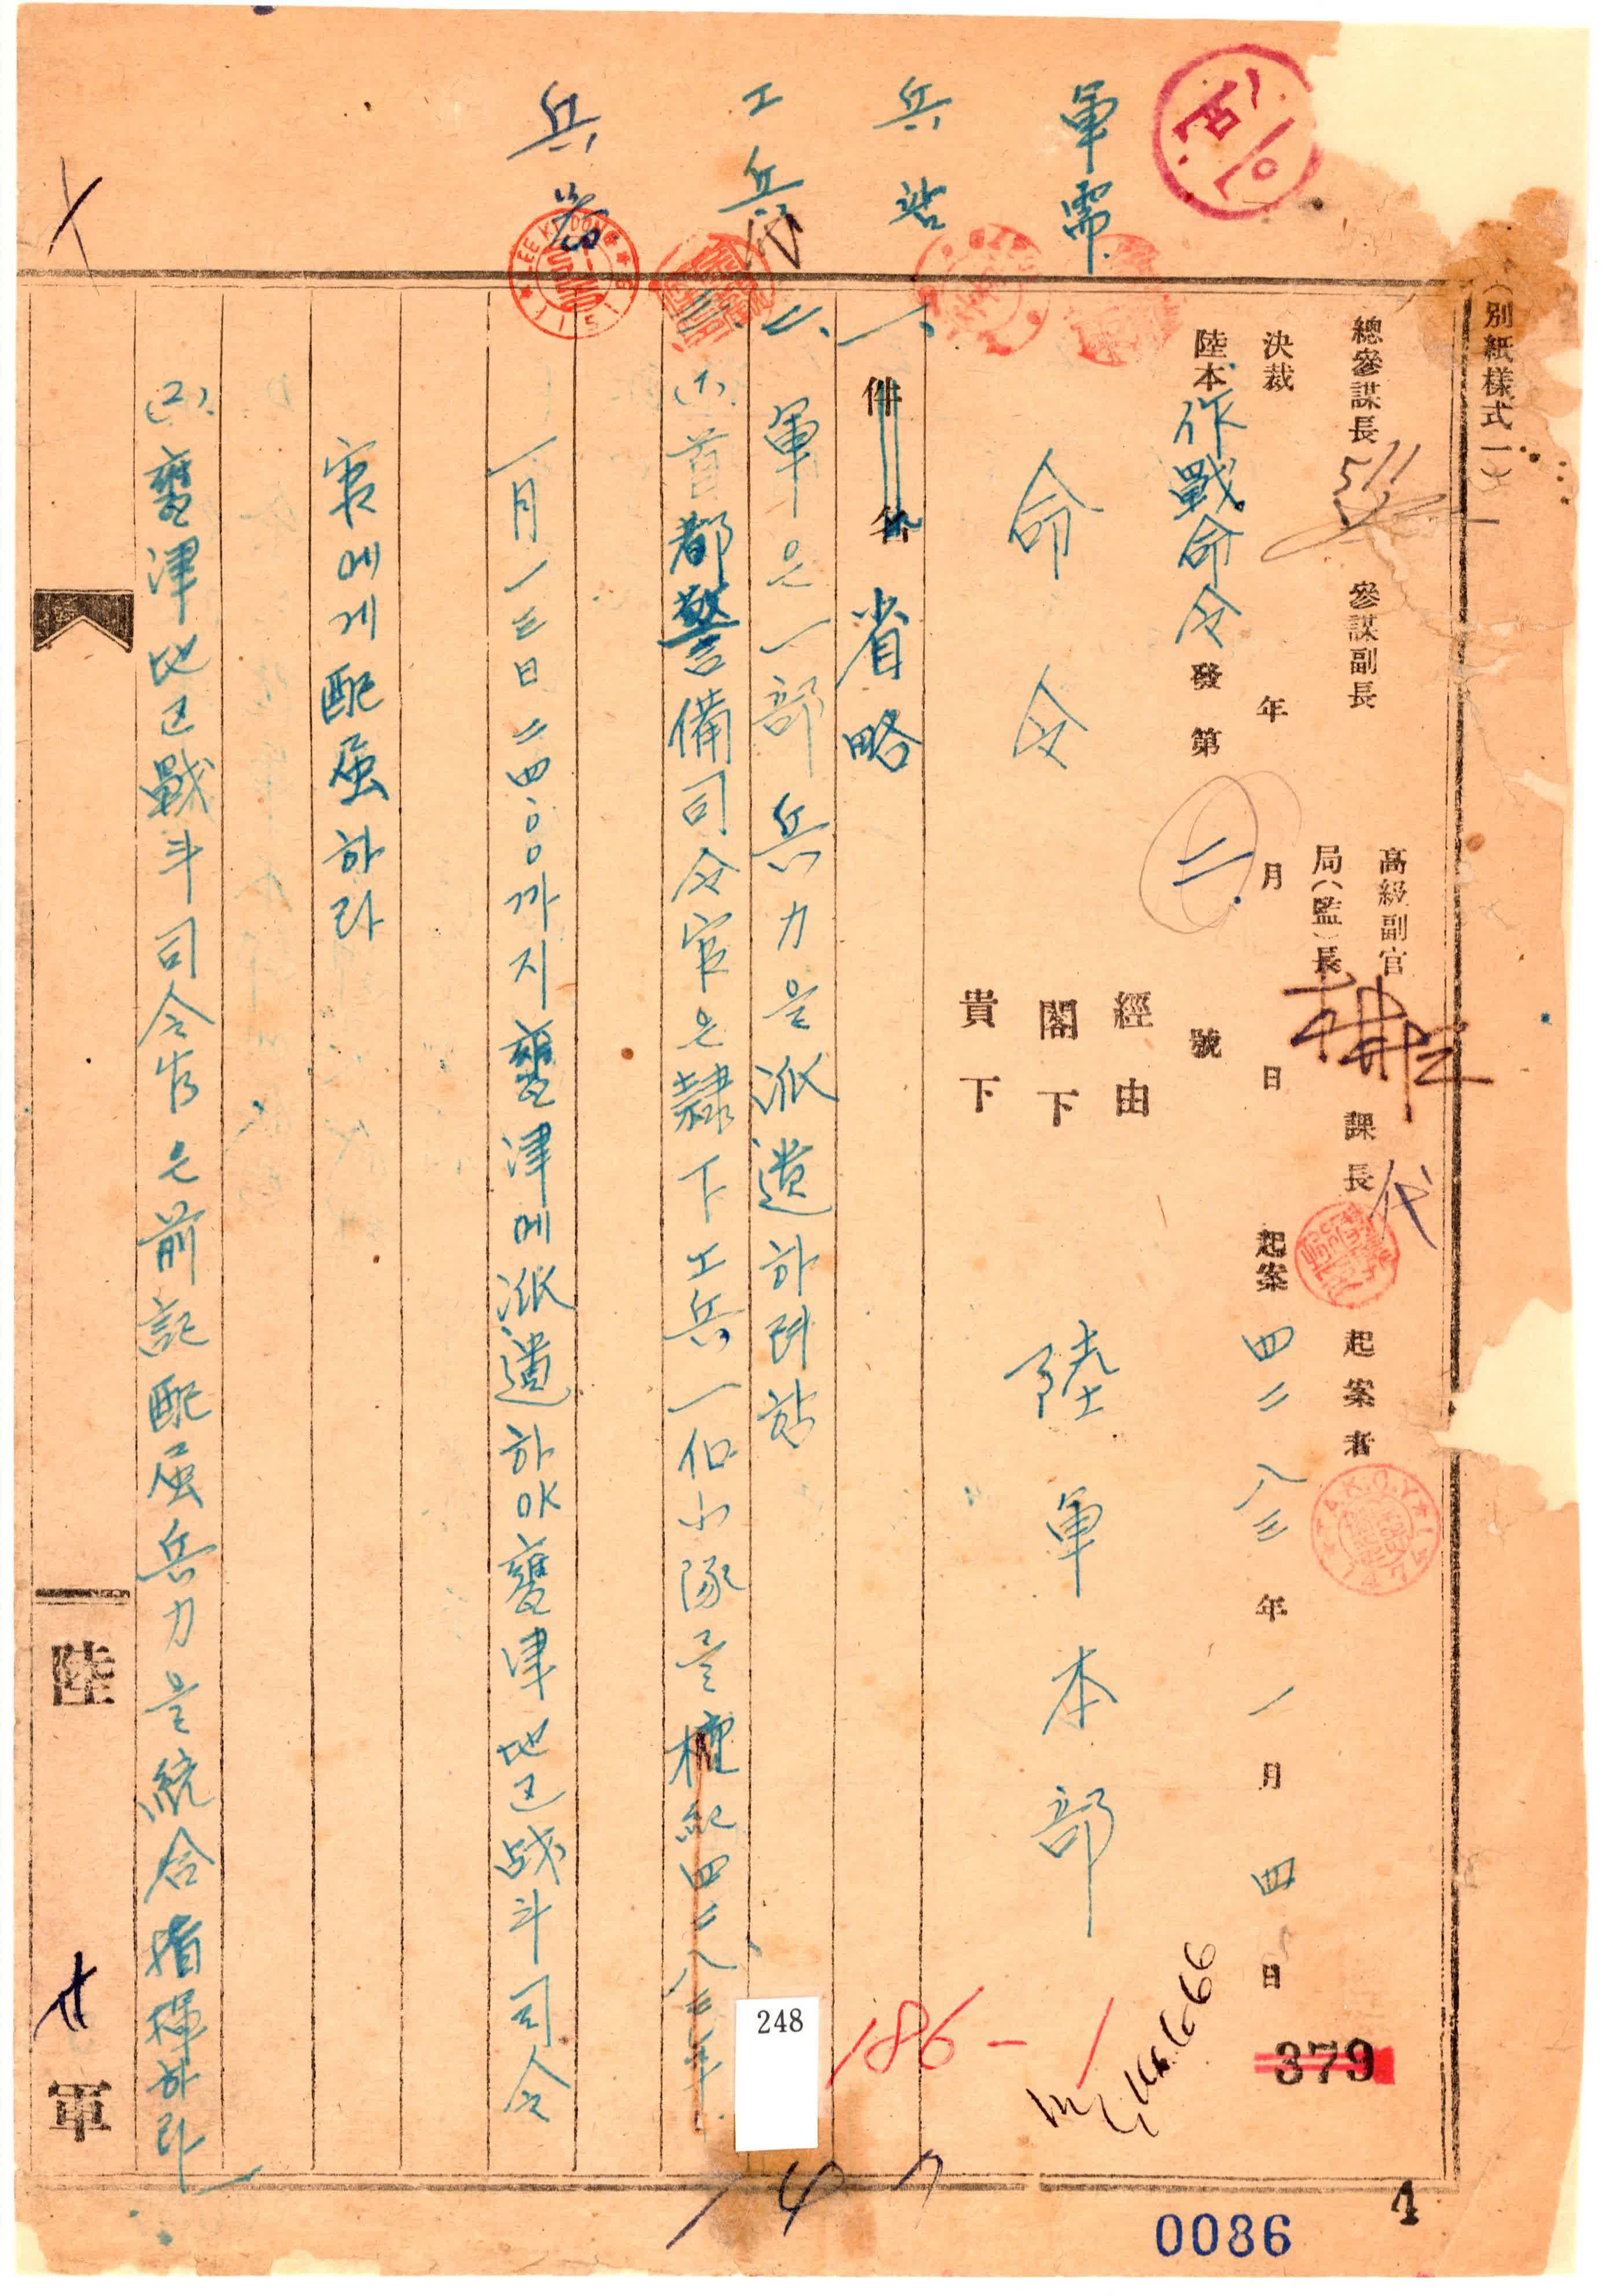 軍需
兵站
工兵
兵器
(別紙樣式一)
總參謀長 參謀副長 高級副官
局(監)長 課長 代 起案者
決裁 年 月 日 起案 四二八三年 一月 四日
陸本 作戰命令 發第 二 號
經由
命令 閣下 陸軍本部
貴下
一、件名 省略
二、軍은 一部 兵力을 派遣하려 함
三、(1)、首都警備司令官은 隸下 工兵 一個小隊를 檀紀四二八三年
一月一三日二四:〇〇까지 甕津에 派遣하야 甕津地区战斗司令
官에게 配屬하라
(2)、甕津地区戰斗司令官은 前記 配屬兵力을 統合指揮하라
陸軍
379
186-1
248
147
0086
1